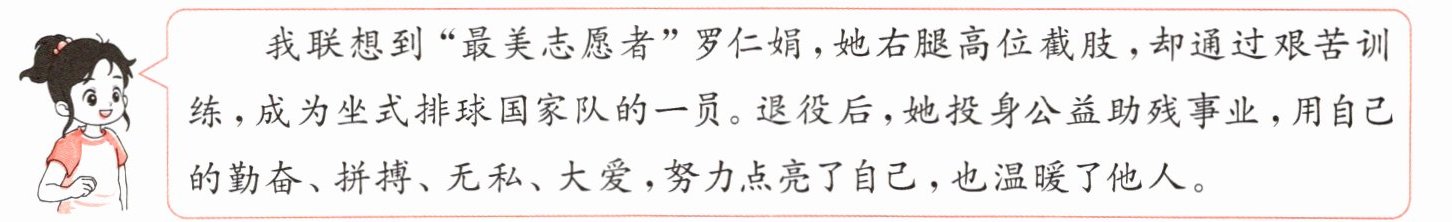 我联想到“最美志愿者”罗仁娟,她右腿高位截肢,却通过艰苦训
练,成为坐式排球国家队的一员。退役后,她投身公益助残事业,用自己
的勤奋、拼搏、无私、大爱,努力点亮了自己,也温暖了他人。